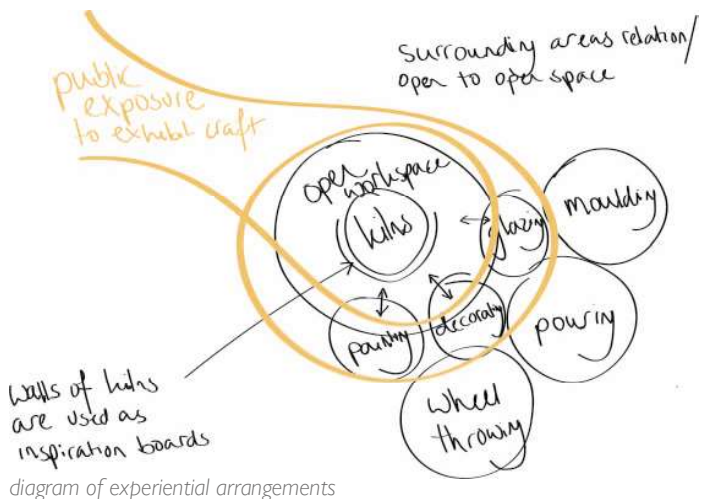 surrounding areas relation/
open to open space
public
exposure
to exhibit craft
open
workspace
kilns
glazing
moulding
painting
decorating
pouring
wheel
throwing
walls of kilns
are used as
inspiration boards
diagram of experiential arrangements